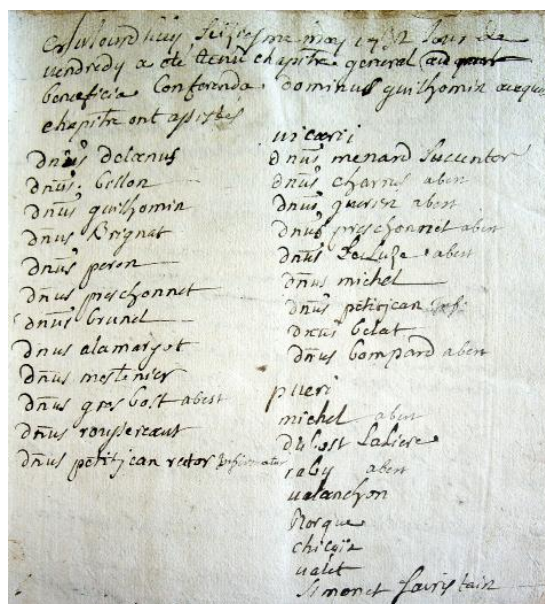 seiziesme may 1732 Jour de
vendredy a eté tenu chapitre general ad
beneficia Conferenda Dominus guilhomin auquel
chapitre ont assistés
dnus decanus
dnus bellon
dnus guilhomin
dnus Brignat
dnus peron
dnus preschonnet
dnus brunel
dnus alamargot
dnus mestenier
dnus gres bost abest
dnus
dnus petitjean rector
vicarii
dnus menard succentor
dnus charus abest
dnus guerier abest
dnus preschonnet abest
dnus abest
dnus michel
dnus petitjean
dnus belat
dnus bompard abest
pueri
michel abest
dubost
raby abest
valanchon
Norque
chicoix
valet
simonet